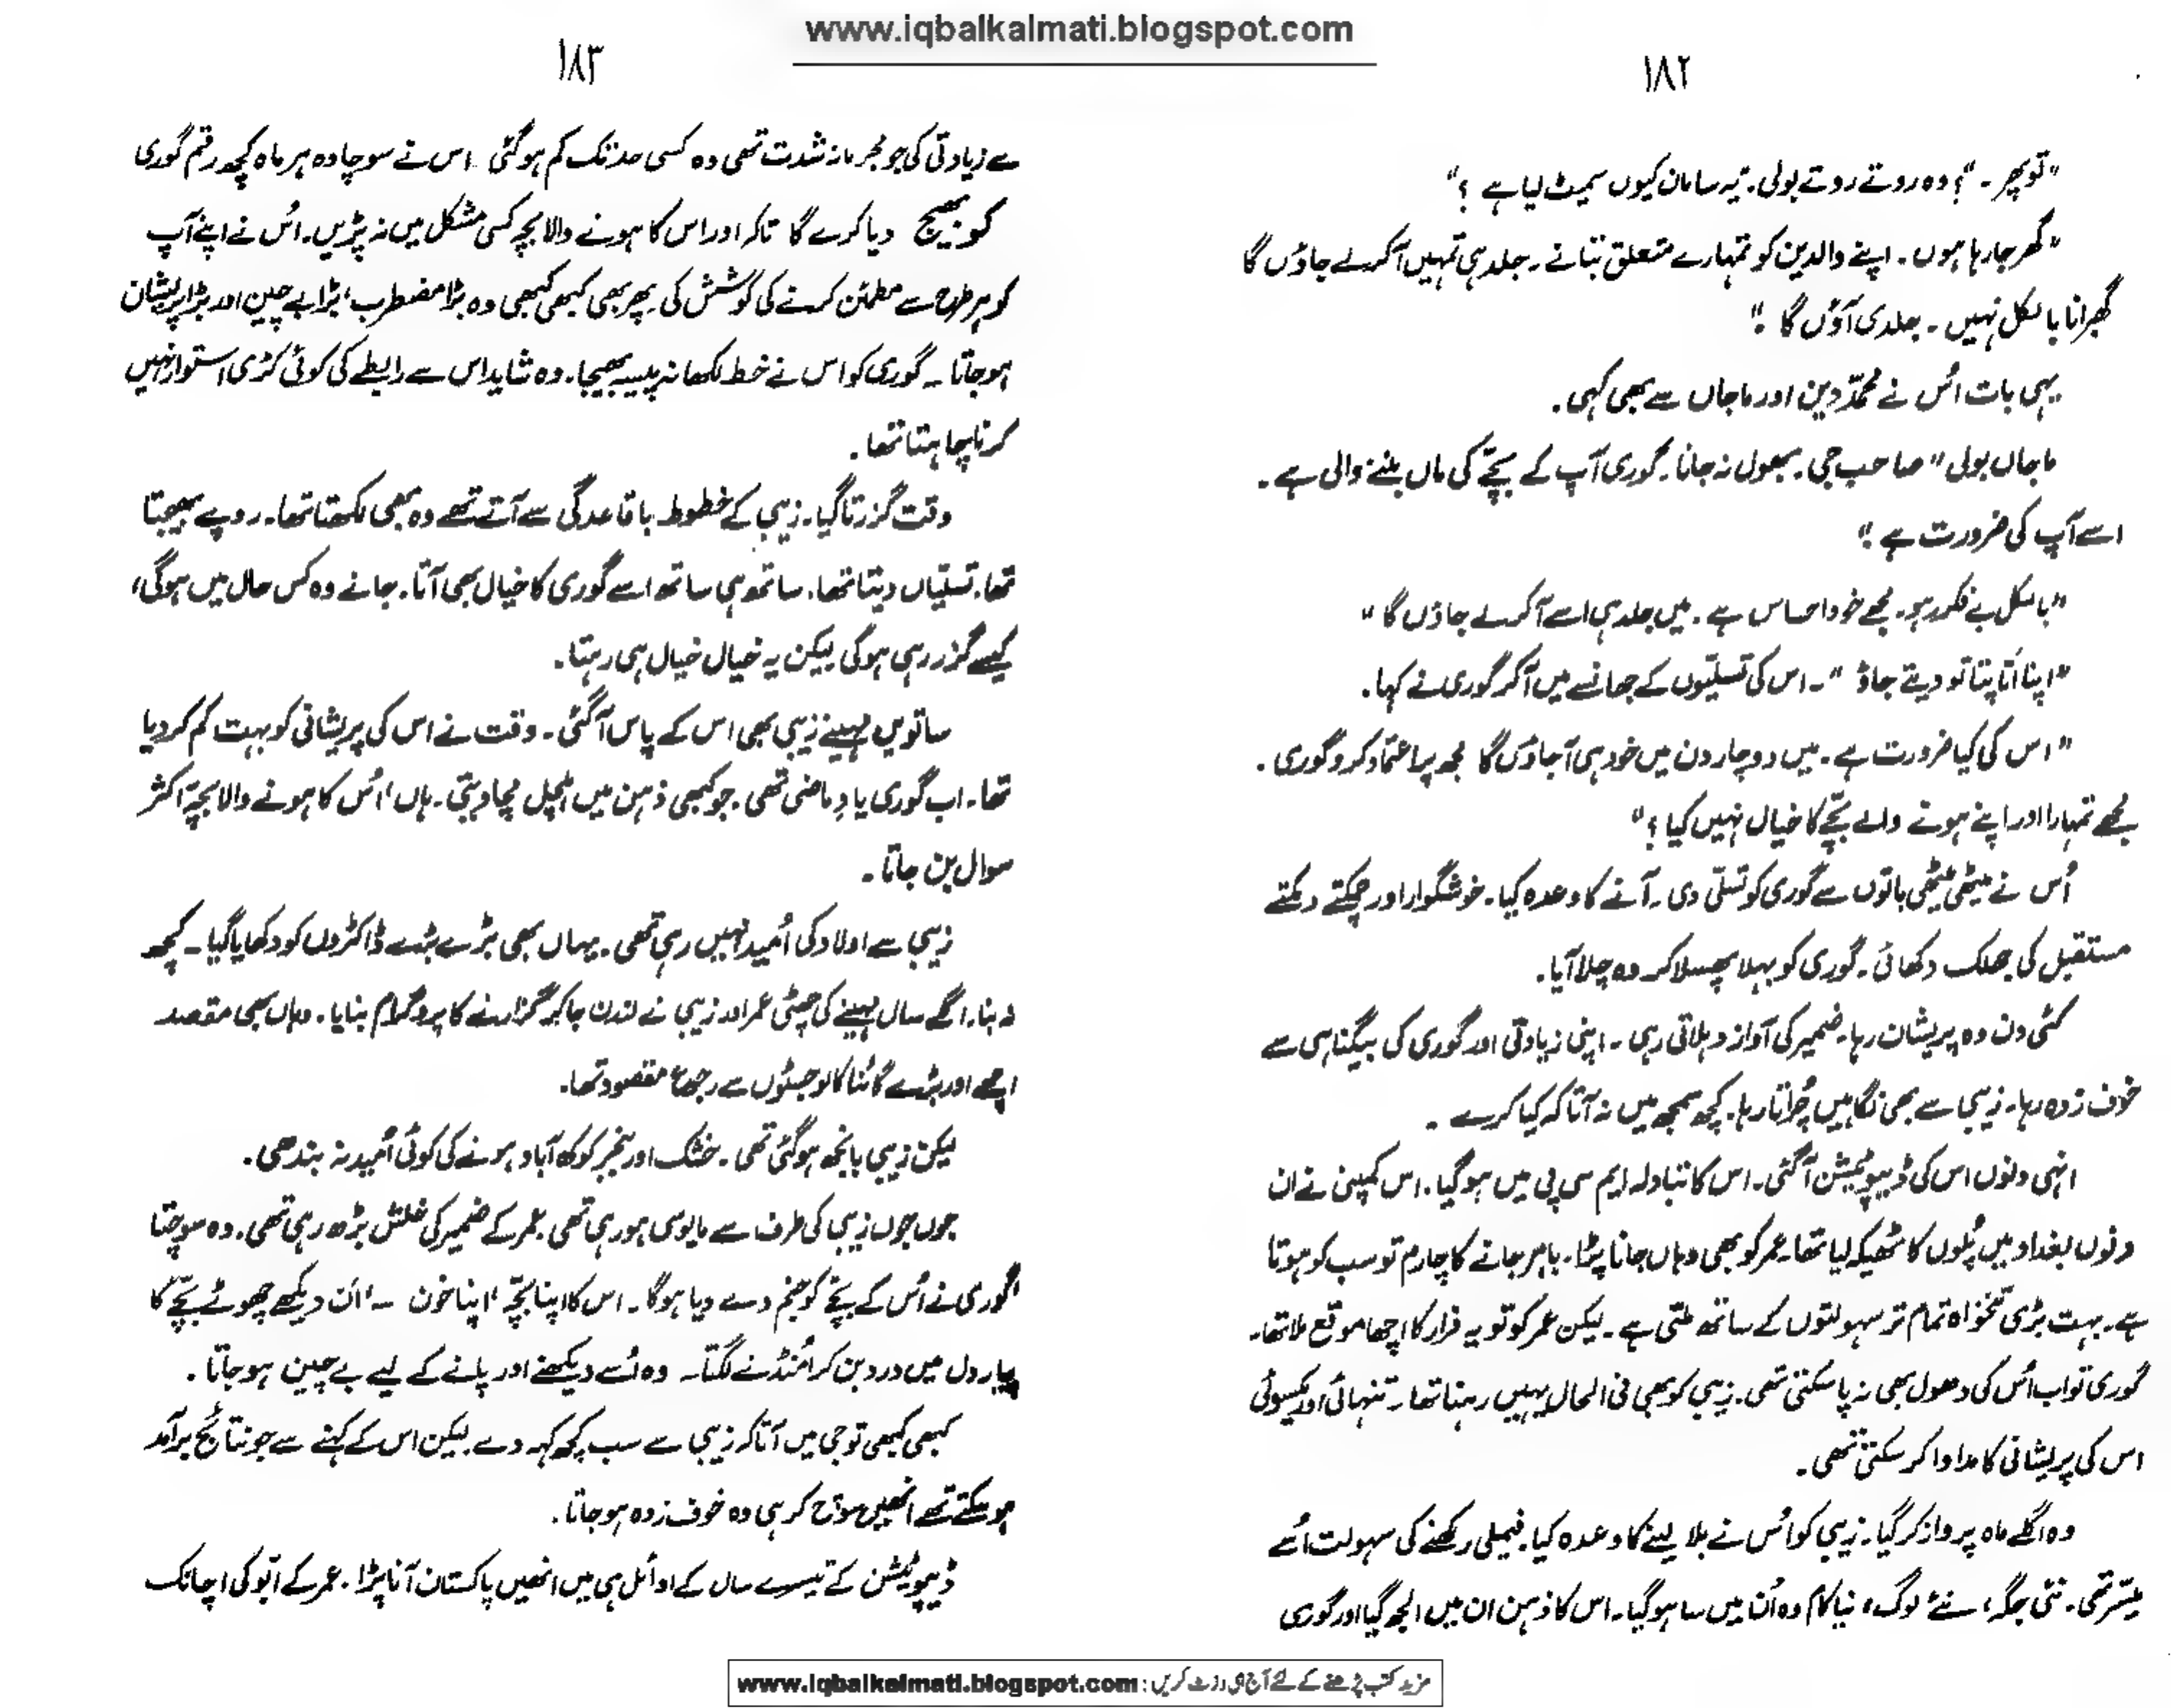 www.iqbalkalmati.blogspot.com
۱۸۲
"تو پھر۔"؟ وہ روتے روتے بولی۔ "یہ سامان کیوں سمیٹ لیا ہے ؟"
"گھر جا رہا ہوں۔ اپنے والدین کو تمہارے متعلق بتانے۔ جلد ہی تمہیں آ کر لے جاؤں گا
گھبرانا بالکل نہیں۔ جلد ہی آؤں گا۔"
یہی بات اُس نے محمّد دین اور ماجاں سے بھی کہی۔
ماجاں بولی "صاحب جی۔ بھول نہ جانا۔ گوری آپ کے بچّے کی ماں بننے والی ہے۔
اسے آپ کی ضرورت ہے۔"
"بالکل بے فکر رہو۔ مجھے خود احساس ہے۔ میں جلد ہی اسے آ کر لے جاؤں گا"
"اپنا اَتا پتا تو دیتے جاؤ"۔ اس کی تسلیّوں کے جھانسے میں آ کر گوری نے کہا۔
"اس کی کیا ضرورت ہے۔ میں دو چار دن میں خود ہی آ جاؤں گا مجھ پر اعتماد کرو گوری۔
مجھے تمہارا اور اپنے ہونے والے بچّے کا خیال نہیں کیا؟"
اُس نے میٹھی میٹھی باتوں سے گوری کو تسلّی دی۔ آنے کا وعدہ کیا۔ خوشگوار اور چمکتے دمکتے
مستقبل کی جھلک دکھائی۔ گوری کو بہلا پھسلا کر وہ چلا آیا۔
کئی دن وہ پریشان رہا۔ ضمیر کی آواز دہلاتی رہی۔ اپنی زیادتی اور گوری کی بیگناہی سے
خوف زدہ رہا۔ زیبی سے بھی نگاہیں چُراتا رہا۔ کچھ سمجھ میں نہ آتا کہ کیا کرے۔
انہی دنوں اس کی ڈیپوٹیشن آ گئی۔ اس کا تبادلہ ایم سی پی میں ہو گیا۔ اس کمپنی نے ان
دنوں بغداد میں پُلوں کا ٹھیکہ لیا تھا۔ عمر کو بھی وہاں جانا پڑا۔ باہر جانے کا چارم تو سب کو ہوتا
ہے۔ بہت بڑی تنخواہ تمام تر سہولتوں کے ساتھ ملتی ہے۔ لیکن عمر کو تو یہ فرار کا اچھا موقع ملا تھا۔
گوری تو اب اُس کی دھول بھی نہ پا سکتی تھی۔ زیبی کو بھی فی الحال یہیں رہنا تھا۔ تنہائی اور یکسوئی
اس کی پریشانی کا مداوا کر سکتی تھی۔
وہ اگلے ماہ پرواز کر گیا۔ زیبی کو اُس نے بلا لینے کا وعدہ کیا۔ فیملی رکھنے کی سہولت اُسے
میسّر تھی۔ نئی جگہ، نئے لوگ، نیا کام وہ اُن میں سا ہو گیا۔ اس کا ذہن ان میں الجھ گیا اور گوری
۱۸۳
سے زیادتی کی جو مجرمانہ شدت تھی وہ کسی حد تک کم ہو گئی۔ اس نے سوچا وہ ہر ماہ کچھ رقم گوری
کو بھیج دیا کرے گا تاکہ اور اس کا ہونے والا بچہ کسی مشکل میں نہ پڑیں۔ اُس نے اپنے آپ
کو ہر طرح سے مطمئن کرنے کی کوشش کی۔ پھر بھی کبھی کبھی وہ بڑا مضطرب، بڑا بے چین اور بڑا پریشان
ہو جاتا۔ گوری کو اس نے خط لکھا نہ پیسہ بھیجا۔ وہ شاید اس سے رابطے کی کوئی کڑی استوار نہیں
کرنا چاہتا تھا۔
وقت گزرتا گیا۔ زیبی کے خطوط باقاعدگی سے آتے تھے وہ بھی لکھتا تھا۔ روپے بھیجتا
تھا۔ تسلیّاں دیتا تھا۔ ساتھ ہی ساتھ اسے گوری کا خیال بھی آتا۔ جانے وہ کس حال میں ہو گی،
کیسے گزر رہی ہو گی لیکن یہ خیال خیال ہی رہتا۔
ساتویں مہینے زیبی بھی اس کے پاس آ گئی۔ وقت نے اس کی پریشانی کو بہت کم کر دیا
تھا۔ اب گوری یادِ ماضی تھی۔ جو کبھی ذہن میں ہلچل مچا دیتی۔ ہاں، اُس کا ہونے والا بچہّ اکثر
سوال بن جاتا۔
زیبی سے اولاد کی اُمید نہیں رہی تھی۔ یہاں بھی بڑے بڑے ڈاکٹروں کو دکھایا گیا۔ کچھ
نہ بنا۔ اگلے سال مہینے کی چھٹی عمر اور زیبی نے لندن جا کر گزارنے کا پروگرام بنایا۔ وہاں بھی مقصد
اچھے اور بڑے گائناکالوجسٹوں سے رجوع مقصود تھا۔
لیکن زیبی بانجھ ہو گئی تھی۔ خشک اور بنجر کوکھ آباد ہونے کی کوئی اُمید نہ بندھی۔
جوں جوں زیبی کی طرف سے مایوسی ہو رہی تھی۔ عمر کے ضمیر کی خلش بڑھ رہی تھی۔ وہ سوچتا
گوری نے اُس کے بچّے کو جنم دے دیا ہو گا۔ اس کا اپنا بچّہ، اپنا خون۔ ان دیکھے چھوٹے بچّے کا
پیار دل میں درد بن کر امُنڈنے لگتا۔ وہ اُسے دیکھنے اور پانے کے لیے بے چین ہو جاتا۔
کبھی کبھی تو جی میں آتا کہ زیبی سے سب کچھ کہہ دے۔ لیکن اس کے کہنے سے جو نتائج برآمد
ہو سکتے تھے انھیں سوچ کر ہی وہ خوف زدہ ہو جاتا۔
ڈیپوٹیشن کے تیسرے سال کے اوائل ہی میں انھیں پاکستان آنا پڑا۔ عمر کے ابّو کی اچانک
مزید کتب پڑھنے کے لئے آج ہی وزٹ کریں: www.iqbalkalmati.blogspot.com